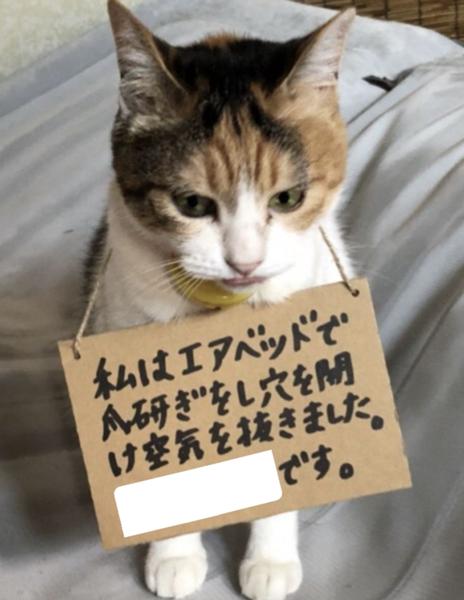 私はエアベッドで
爪研ぎをし穴を開
け空気を抜きました。
です。